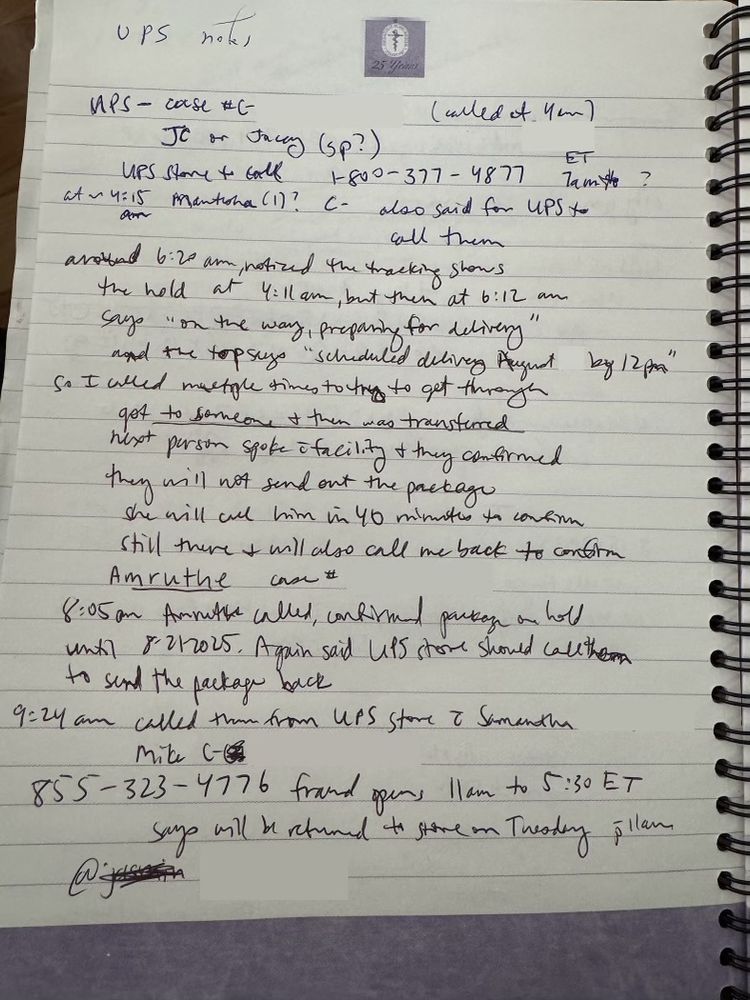 UPS notes
25 Years
UPS - case # C-
(called at 4am)
JC or Jacey (sp?)
UPS store to call 1-800-377-4877 ET 7am ?
at ~ 4:15 am (1)? C- also said for UPS to
call them
around 6:20 am, noticed the tracking shows
the hold at 4:11 am, but then at 6:12 am
says "on the way, preparing for delivery"
and the top says "scheduled delivery August by 12pm"
so I called multiple times to try to get through
got to someone & then was transferred
next person spoke c̄ facility & they confirmed
they will not send out the package
she will call him in 40 minutes to confirm
still there & will also call me back to confirm
Amruthe case #
8:05 am Amruthe called, confirmed package on hold
until 8-21-2025. Again said UPS store should call them
to send the package back
9:24 am called them from UPS store c̄ Samantha
Mike C-
855-323-4776 fraud opens 11am to 5:30 ET
says will be returned to store on Tuesday p̄ 11am
@